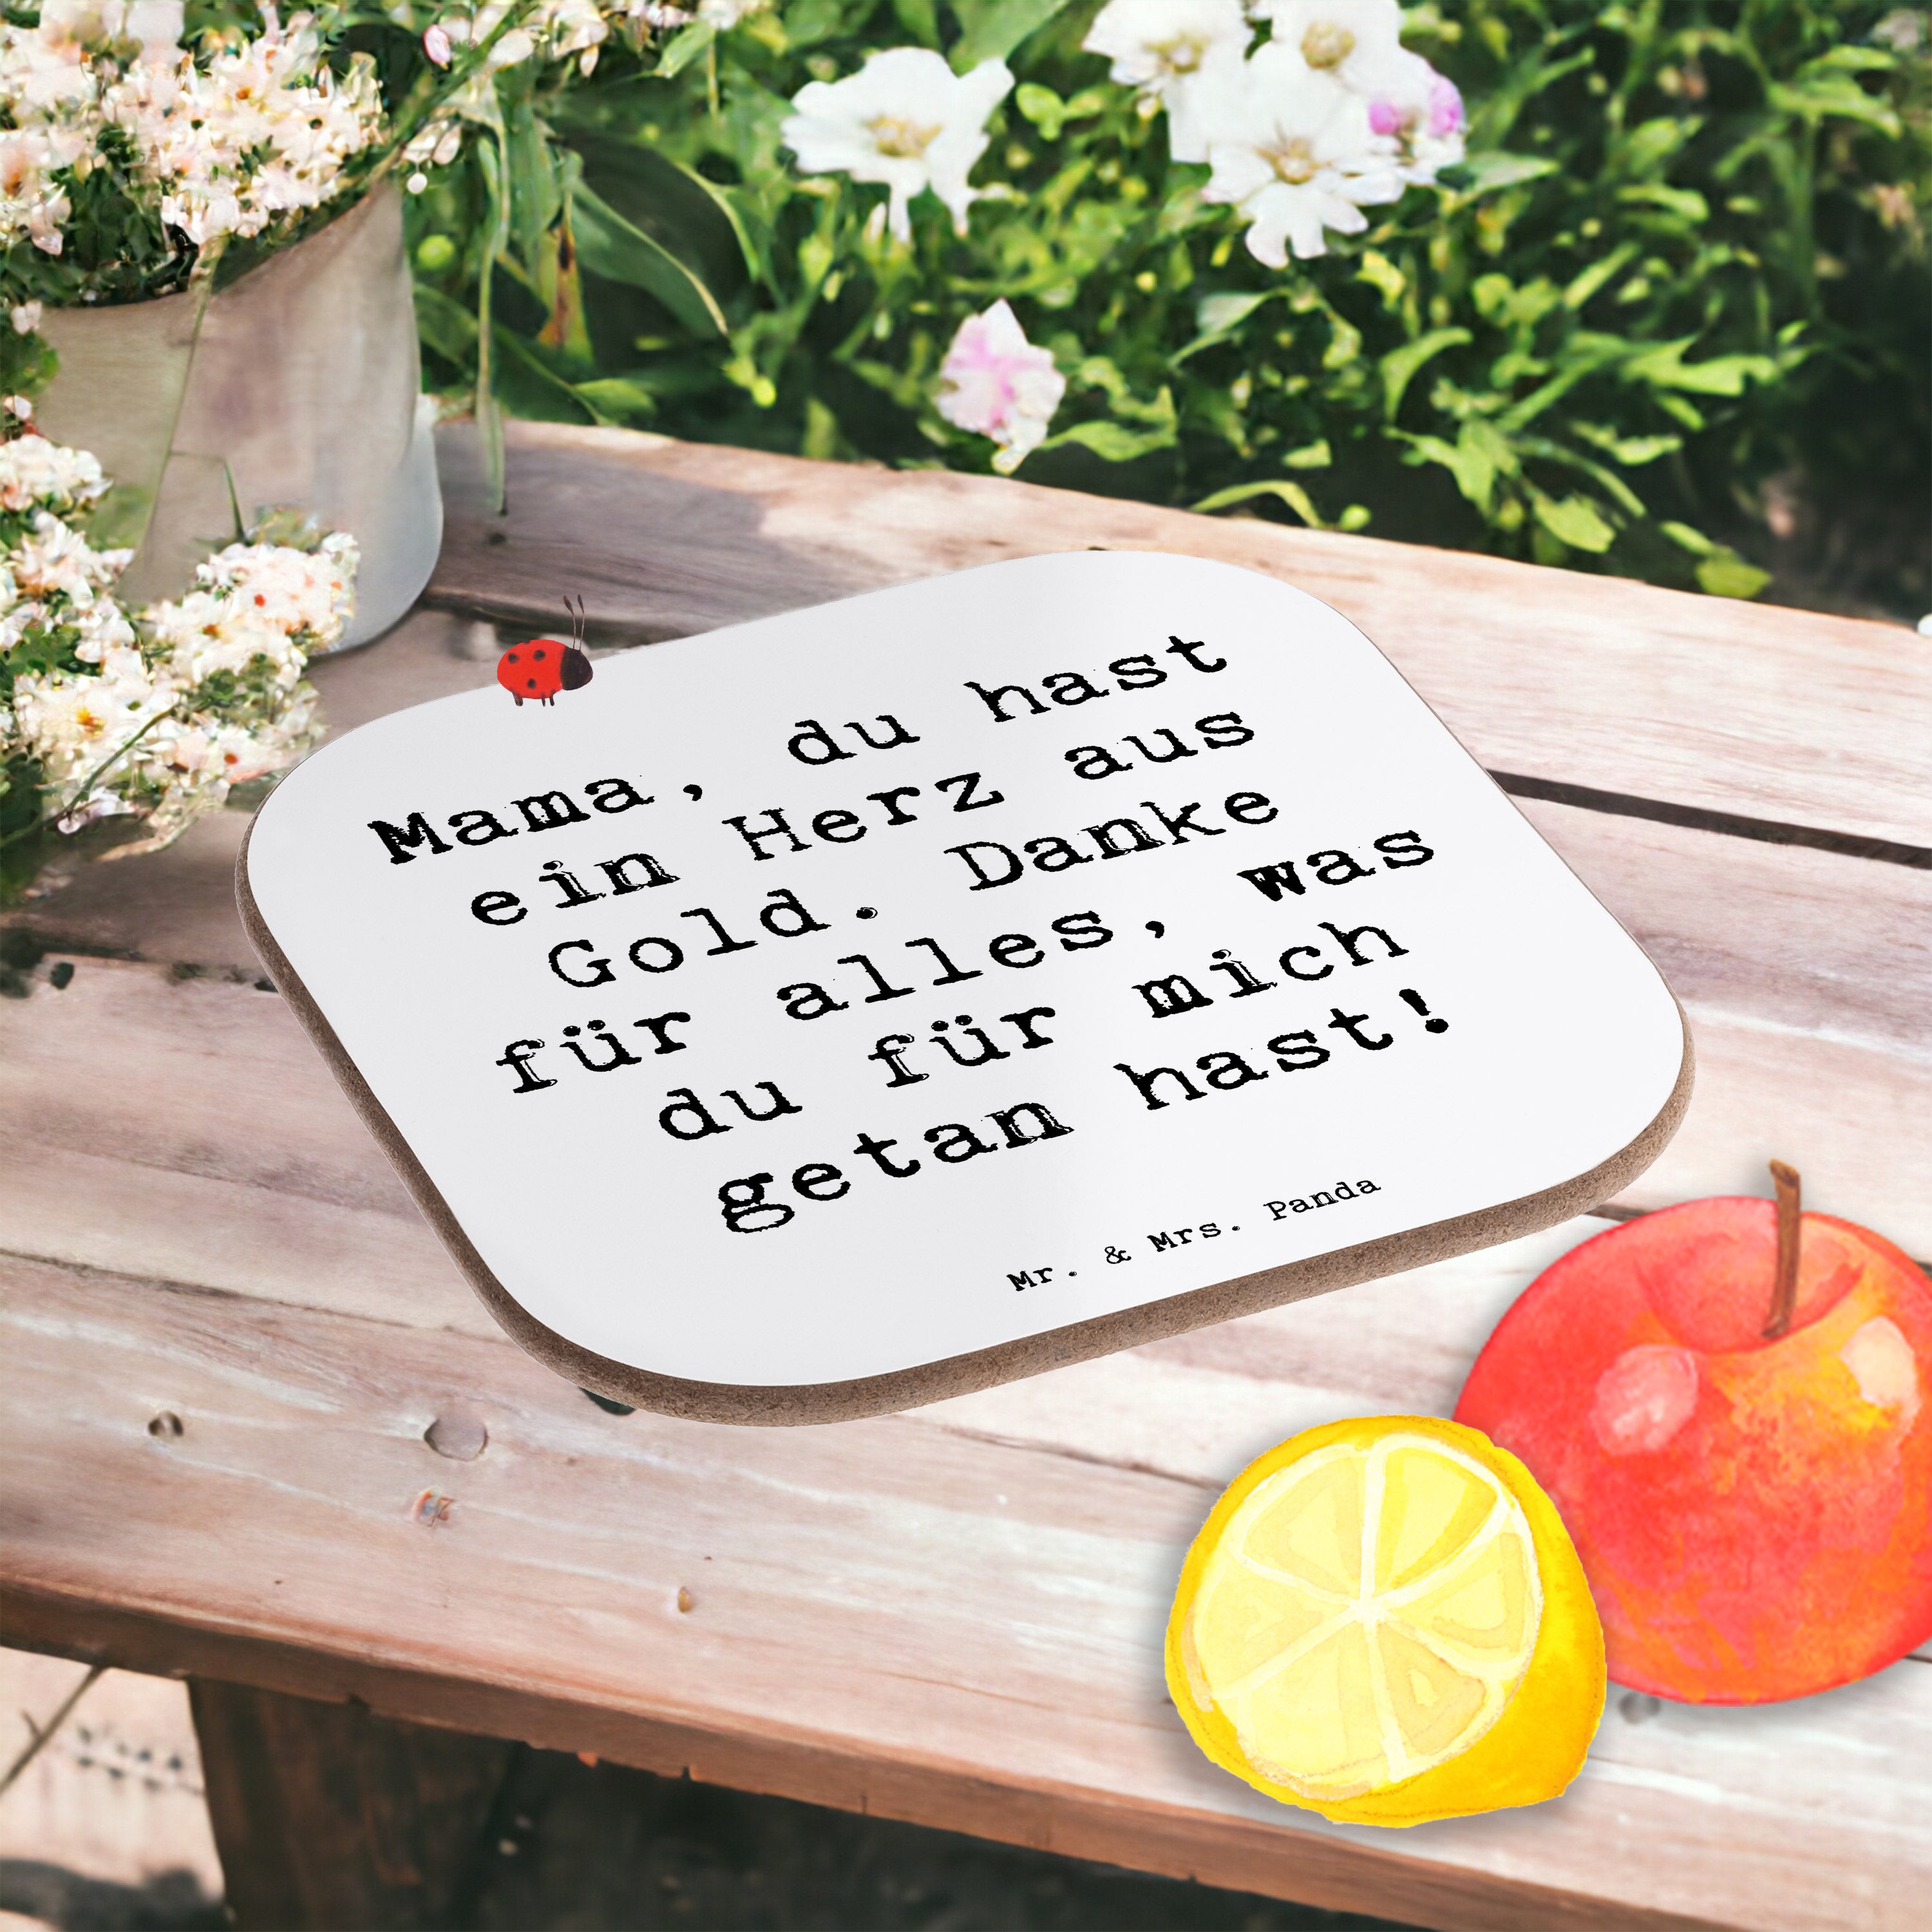 Mama, du hast
ein Herz aus
Gold. Danke
für alles, was
du für mich
getan hast!
Mr. & Mrs. Panda